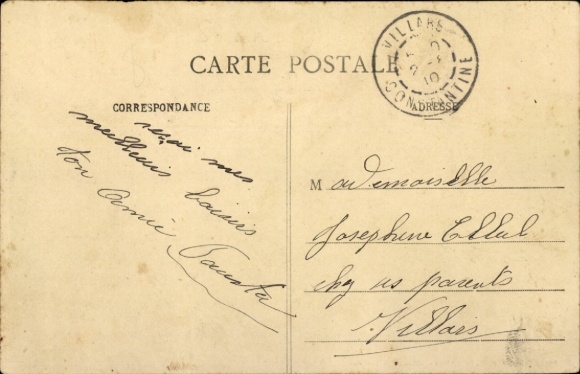 CARTE POSTALE
VILLARS
CONSTANTINE
CORRESPONDANCE
ADRESSE
reçoi mes
meilleurs baisers
ton amie
Mademoiselle
Josephine Ellul
chez ses parents
Villars